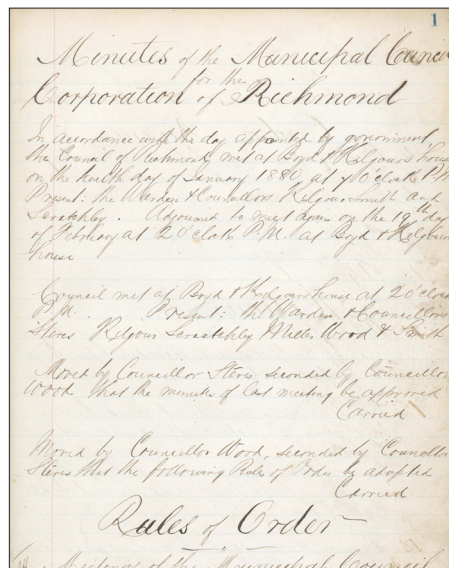 1
Minutes of the Municipal Council
for the
Corporation of Richmond
In accordance with the day appointed by government,
the Council of Richmond met at Boyd & Kilgours house
on the twelfth day of January 1880, at 7 O'cloth P.M.
Present: the Warden & Councillors Kilgour Smith and
Scratchley. Adjourned to meet again on the 19th day
of February at 2 O'cloth P.M. at Boyd & Kilgours
house
Council met at Boyd & Kilgours house at 2 O'clock
P.M. Present: the Warden & Councillors
Steves Kilgour Scratchley Miller Wood & Smith
Moved by Councillor Steves seconded by Councillor
Wood, that the minutes of last meeting be approved
Carried
Moved by Councillor Wood, seconded by Councillor
Steves that the following Rules of Order be adopted
Carried
Rules of Order
Meetings of the Municipal Council